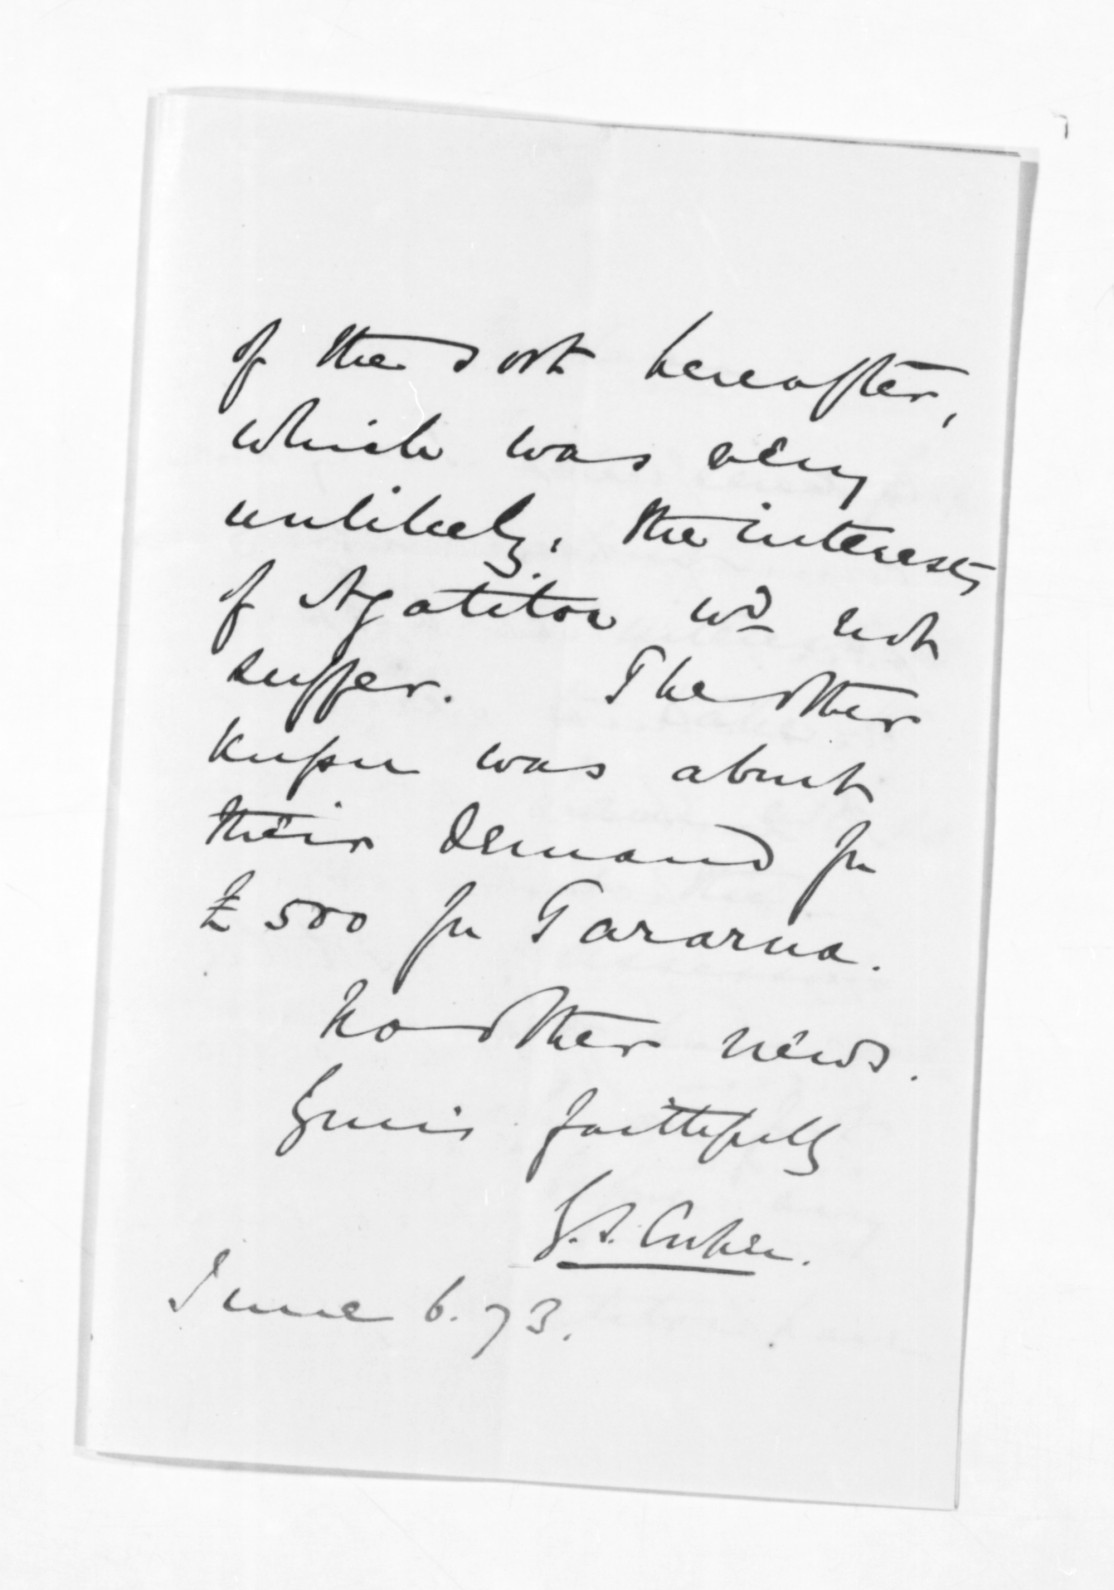 of the sort hereafter,
which was very
unlikely, the interests
of Ngatitoa wd. not
suffer. The other
kupu was about
their demand for
£500 for Tararua.
No other news.
Yours faithfully
G. S. Cooper.
June 6. 73.